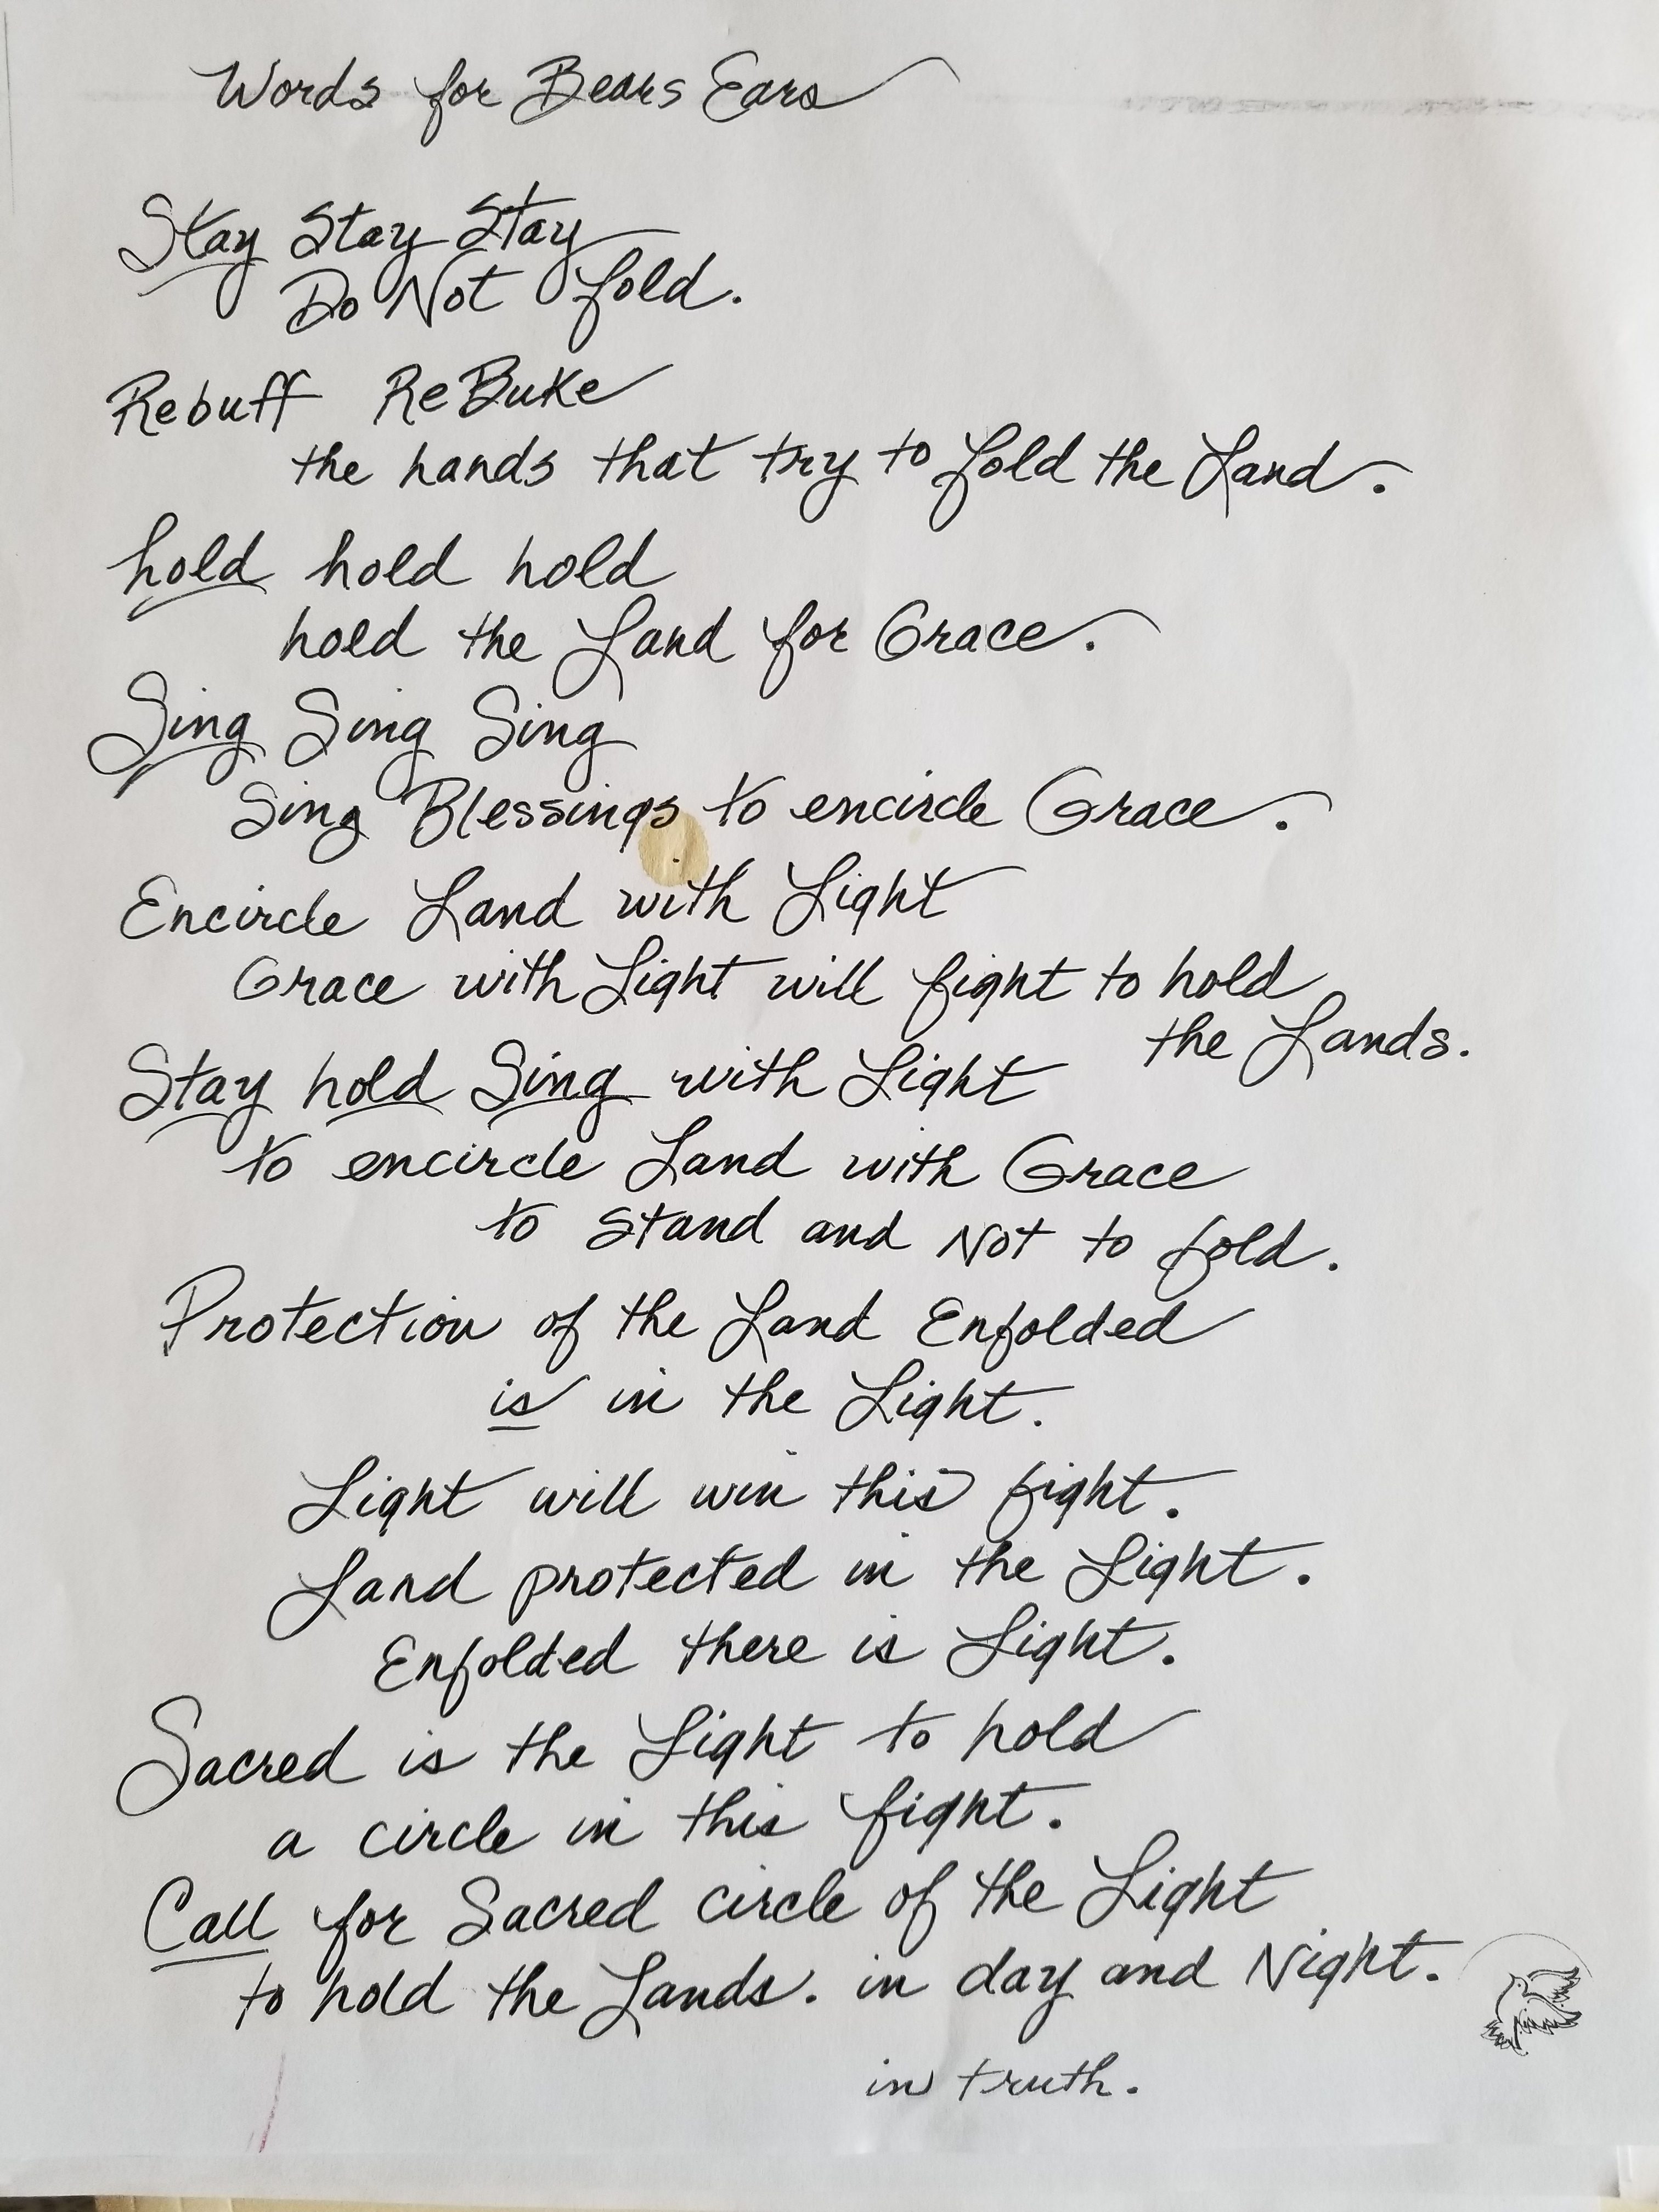 Words for Bears Ears
Stay Stay Stay
Do Not fold.
Rebuff ReBuke
the hands that try to fold the Land.
hold hold hold
hold the Land for Grace.
Sing Sing Sing
Sing Blessings to encircle Grace.
Encircle Land with Light
Grace with Light will fight to hold
the Lands.
Stay hold Sing with Light
to encircle Land with Grace
to stand and Not to fold.
Protection of the Land Enfolded
is in the Light.
Light will win this fight.
Land protected in the Light.
Enfolded there is Light.
Sacred is the Light to hold
a circle in this fight.
Call for Sacred circle of the Light
to hold the Lands. in day and Night.
in truth.